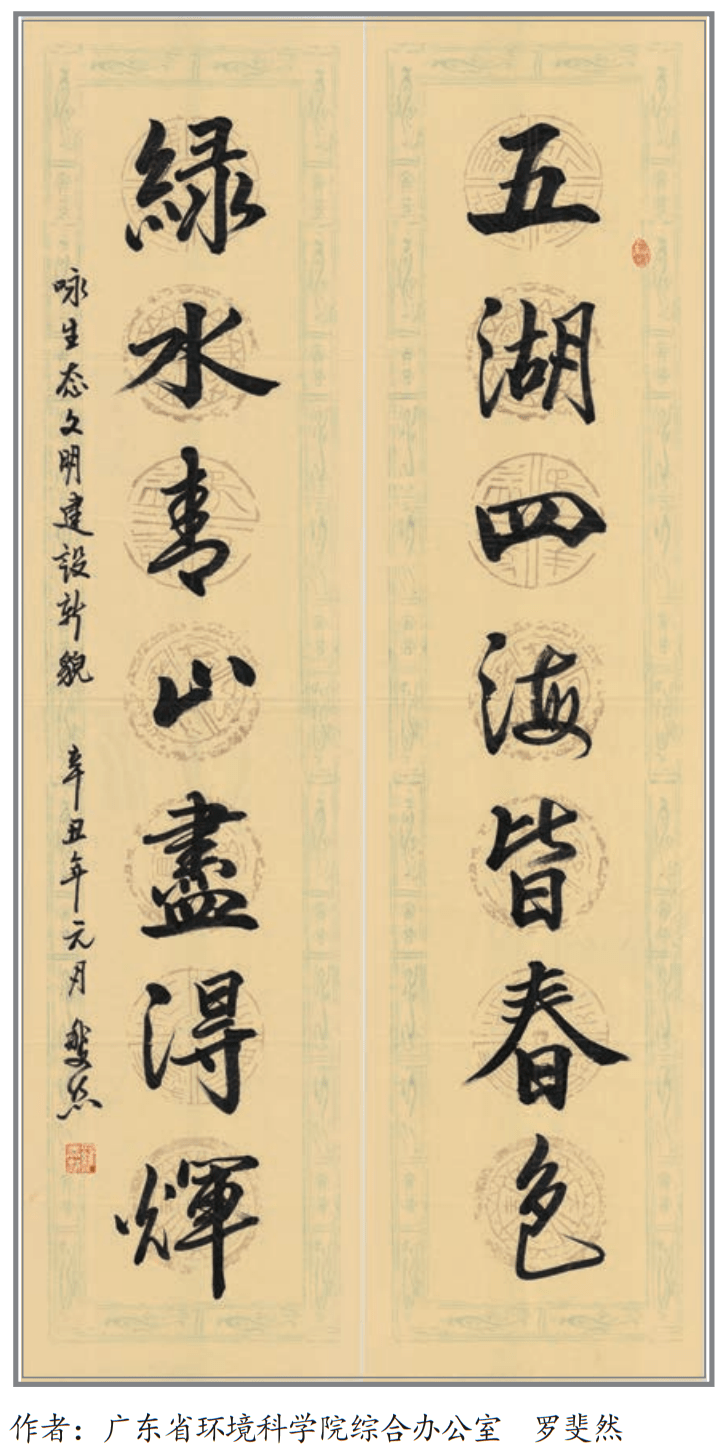 五湖四海皆春色
緑水青山盡得輝
咏生态文明建設新貌 辛丑年元月 斐然
作者：广东省环境科学院综合办公室 罗斐然